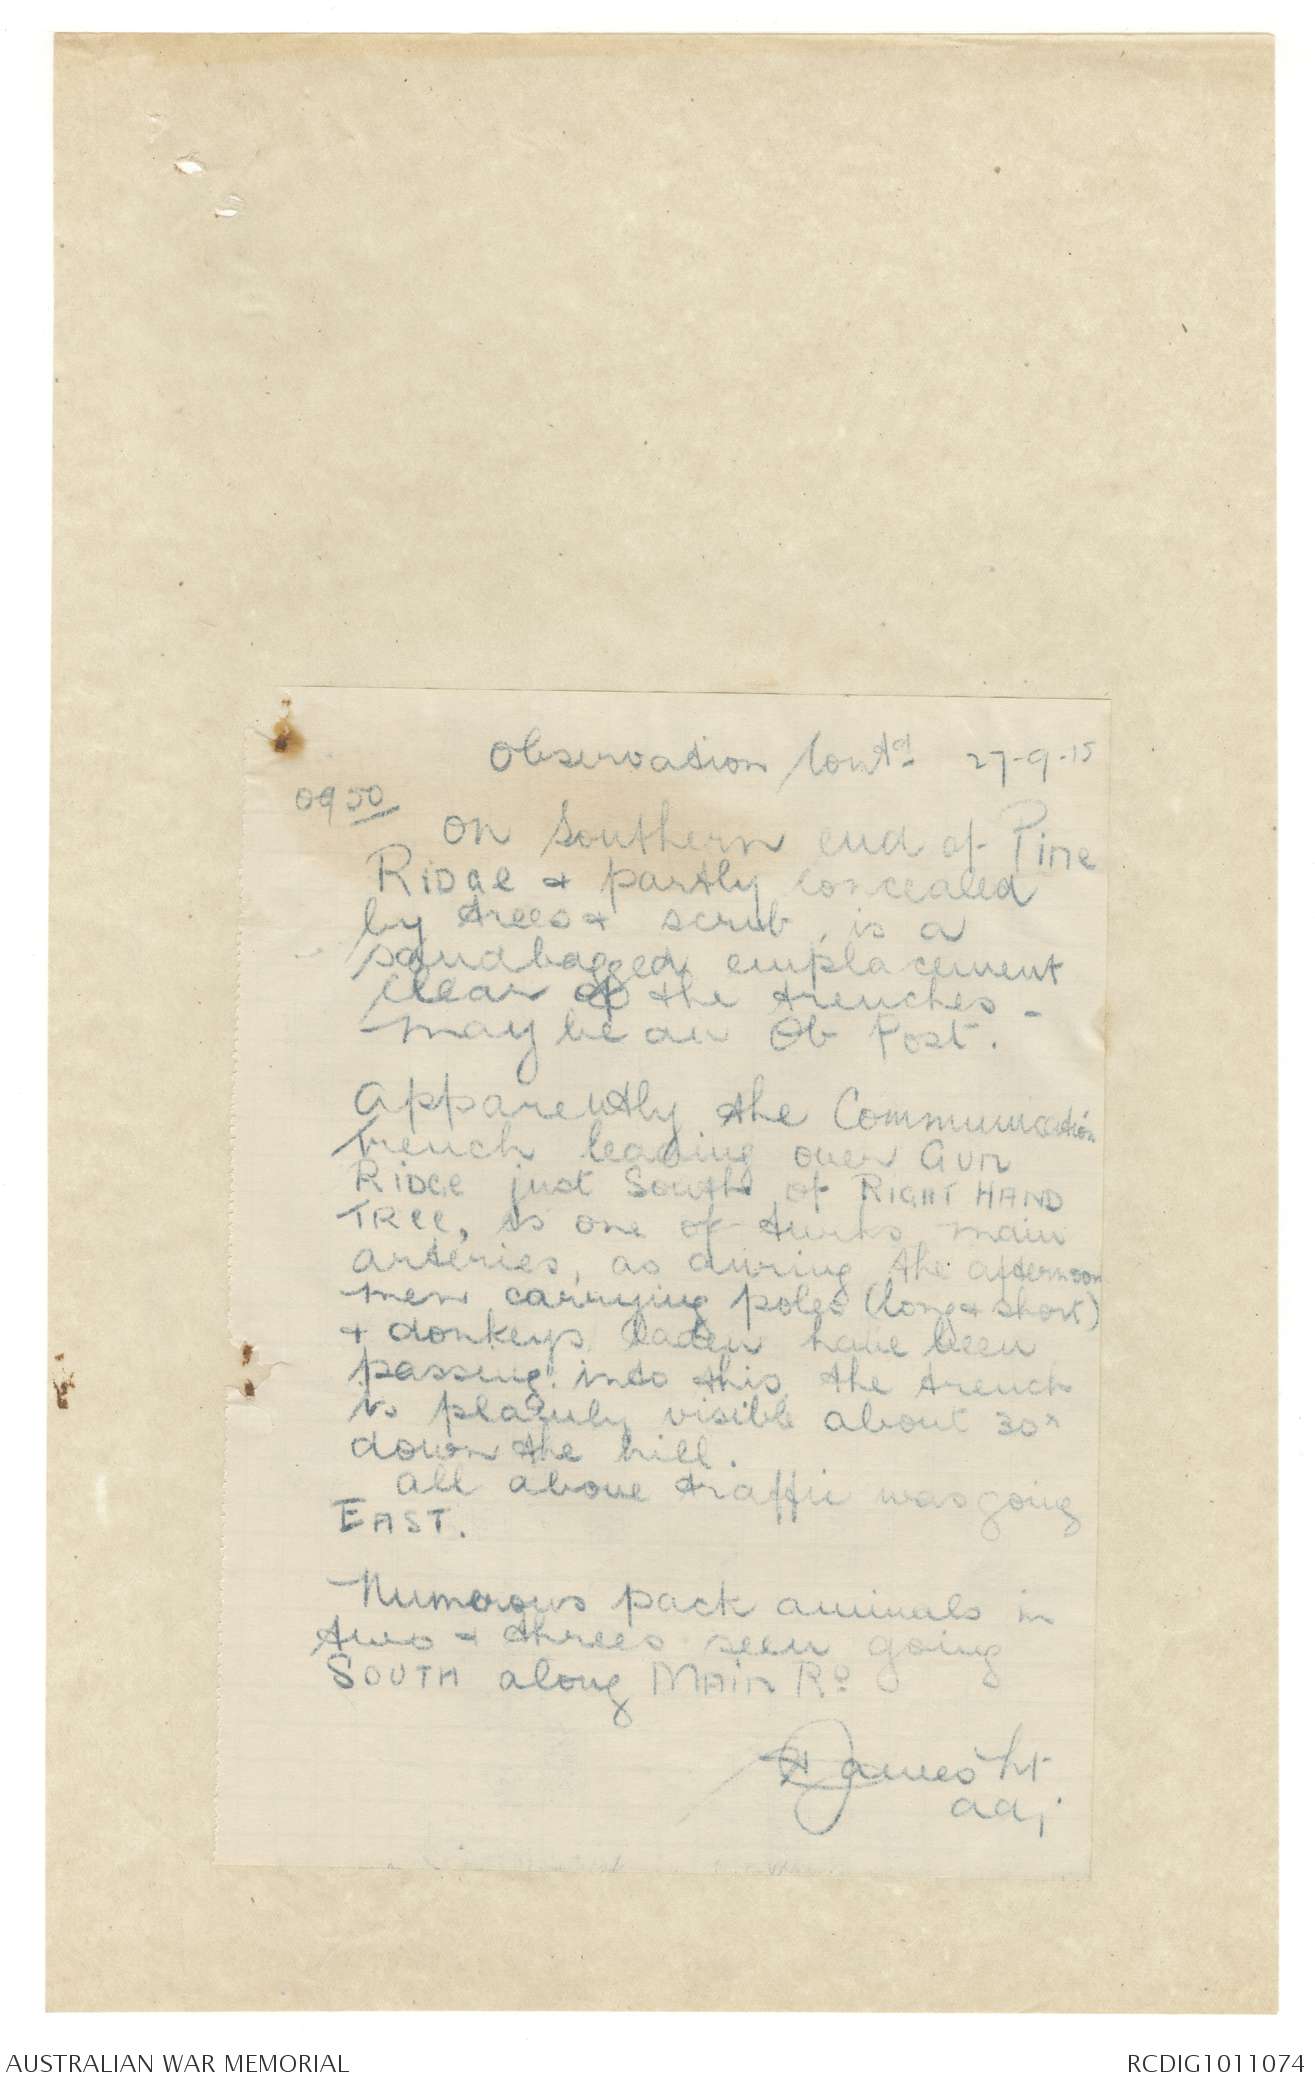 Observation Contd 27-9-15
0950
On Southern end of Pine
RIDGE & partly concealed
by trees & scrub, is a
sandbagged emplacement
clear of the trenches -
may be an Ob Post.
Apparently the Communication
trench leading over GUN
RIDGE just South of RIGHT HAND
TREE, is one of turks main
arteries, as during the afternoon
men carrying poles (long & short)
& donkeys laden have been
passing into this, the trench
is plainly visible about 30x
down the hill.
all above traffic was going
EAST.
Numerous pack animals in
twos & threes seen going
SOUTH along MAIN RD
James Lt
adj
AUSTRALIAN WAR MEMORIAL
RCDIG1011074